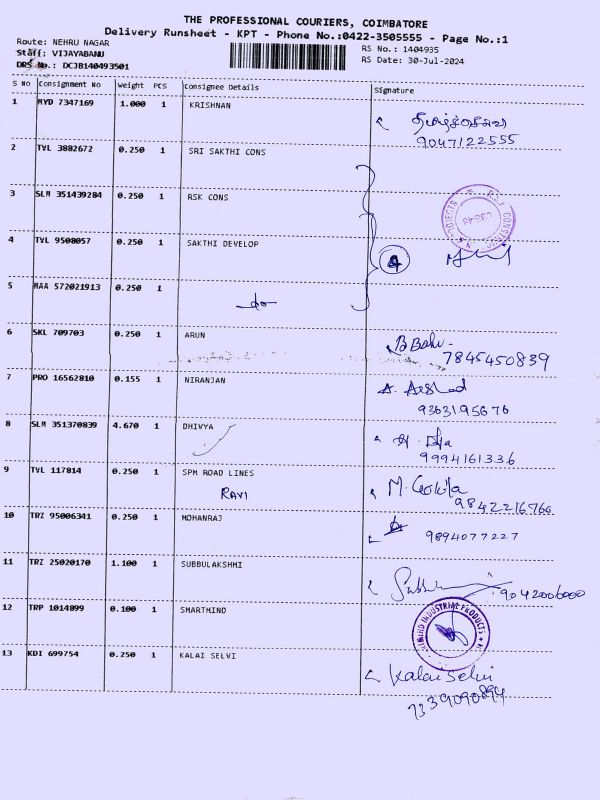 THE PROFESSIONAL COURIERS, COIMBATORE
Delivery Runsheet - KPT - Phone No.:0422-3505555 - Page No.:1
Route: NEHRU NAGAR
Staff: VIJAYABANU
DRS No.: DCJB140493501
RS No.: 1404935
RS Date: 30-Jul-2024
S No Consignment No Weight PCS Consignee Details Signature
1 MYD 7347169 1.000 1 KRISHNAN
9047122555
2 TVL 3882672 0.250 1 SRI SAKTHI CONS
3 SLM 351439284 0.250 1 RSK CONS
4 TVL 9508057 0.250 1 SAKTHI DEVELOP
4
5 MAA 572021913 0.250 1
do
6 SKL 709703 0.250 1 ARUN
B Babu -
7845450839
7 PRO 16562810 0.155 1 NIRANJAN
9363195676
8 SLM 351370839 4.670 1 DHIVYA
9994161336
9 TVL 117814 0.250 1 SPM ROAD LINES
RAVI
M. Gokila
9842216766
10 TRZ 95006341 0.250 1 MOHANRAJ
9894077227
11 TRZ 25020170 1.100 1 SUBBULAKSHMI
9042006000
12 TRP 1014899 0.100 1 SMARTMIND
INDUSTRIAL PRODUCTS
13 KDI 699754 0.250 1 KALAI SELVI
Kalai Selvi
7339090894